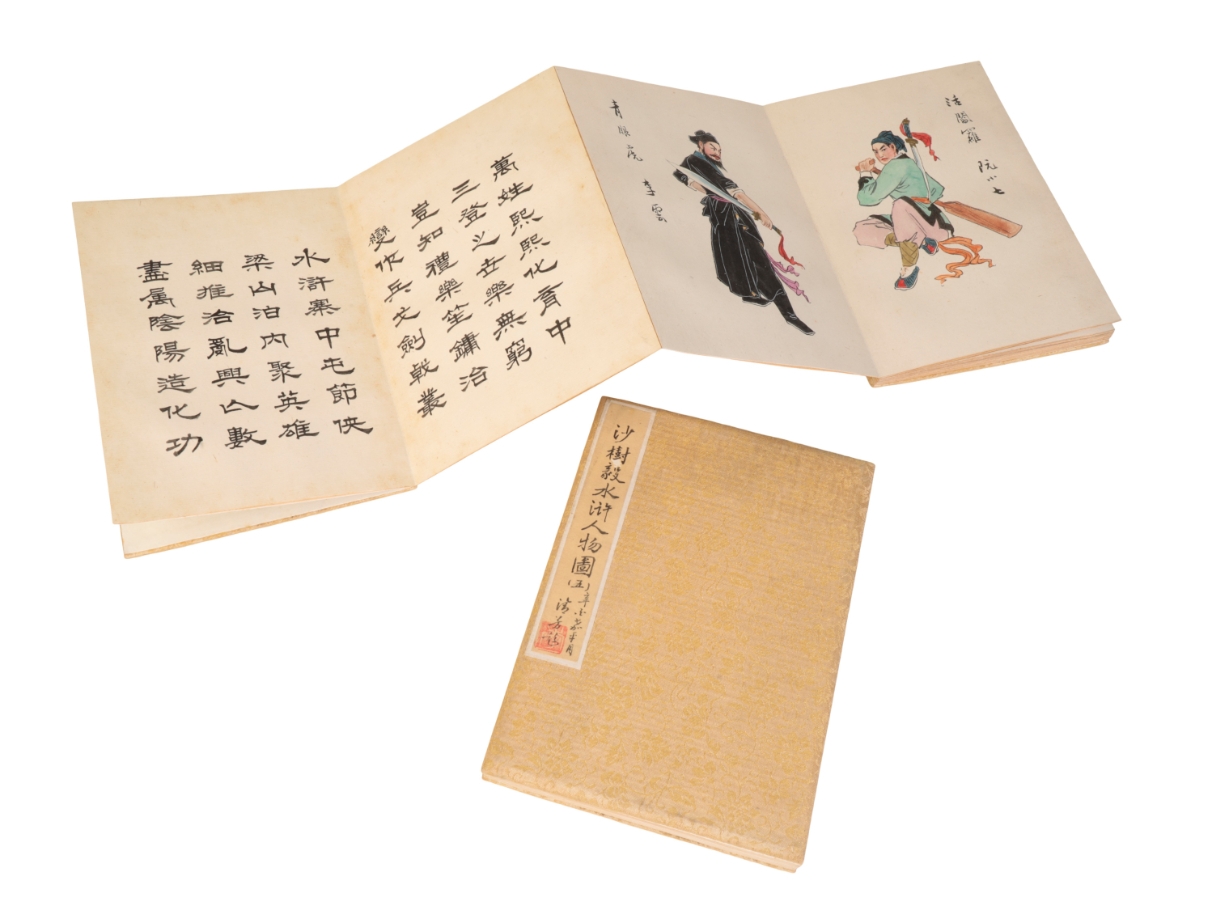 萬姓熙熙化育中
三登之世樂無窮
豈知禮樂笙鏞治
變作兵戈劍戟叢
水滸寨中屯節俠
梁山泊內聚英雄
細推治亂興亡數
盡屬陰陽造化功
活閻羅 阮小七
青眼虎 李雲
沙樹毅水滸人物圖(五)